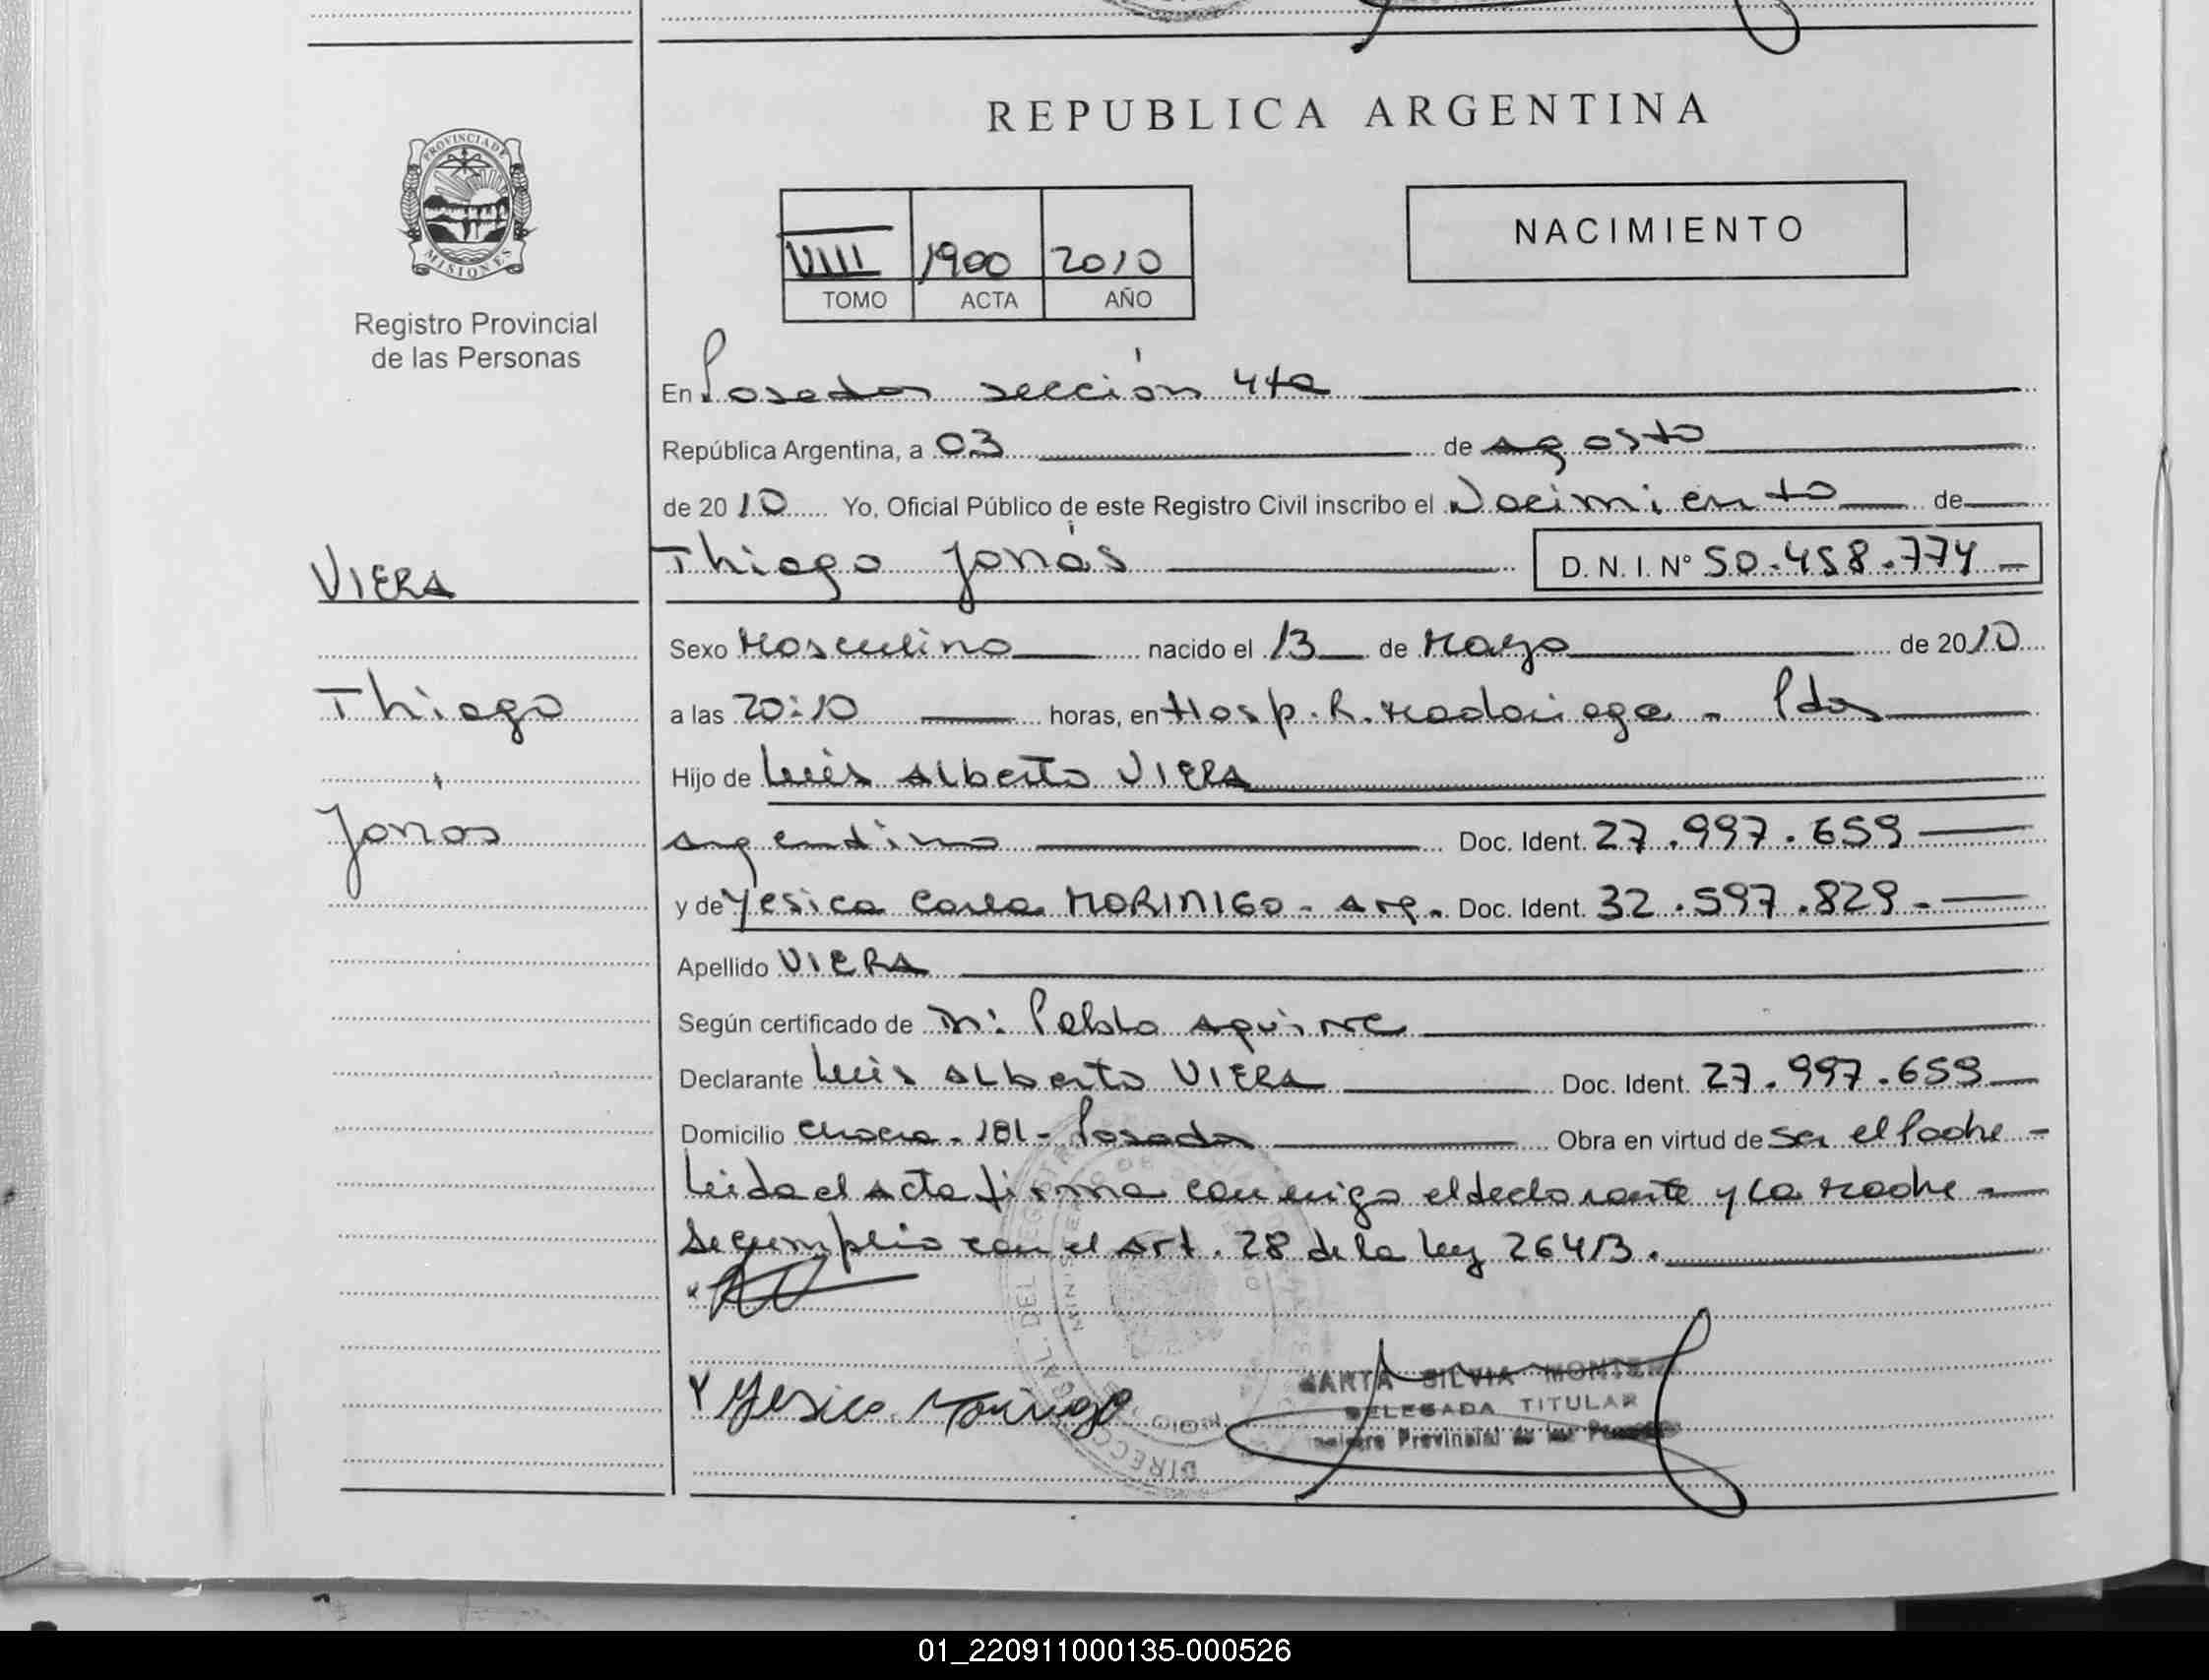 REPUBLICA ARGENTINA
PROVINCIA DE
MISIONES
Registro Provincial
de las Personas
VIII 1900 2010
TOMO ACTA AÑO
NACIMIENTO
En Posadas sección 4ta
República Argentina, a 03 de agosto
de 2010 Yo, Oficial Público de este Registro Civil inscribo el Nacimiento de
Thiago Jonás D.N.I. Nº 50.458.774
VIERA
Thiago
Jonás
Sexo Masculino nacido el 13 de Mayo de 2010
a las 20:10 horas, en Hosp. R. Madariaga - Pdas
Hijo de Luis Alberto VIERA
argentino Doc. Ident. 27.997.659
y de Yesica Carla MORINIGO - Arg. Doc. Ident. 32.597.829
Apellido VIERA
Según certificado de Pablo Aguirre
Declarante Luis Alberto VIERA Doc. Ident. 27.997.659
Domicilio Chaco - 181 - Posadas Obra en virtud de ser el Padre -
Leida el acta firma conmigo el declarante y la madre -
Se cumplio con el Art. 28 de la ley 26413.
Yesica Morinigo
MARTA SILVIA MONTER
DELEGADA TITULAR
Registro Provincial de las Personas
01_220911000135-000526